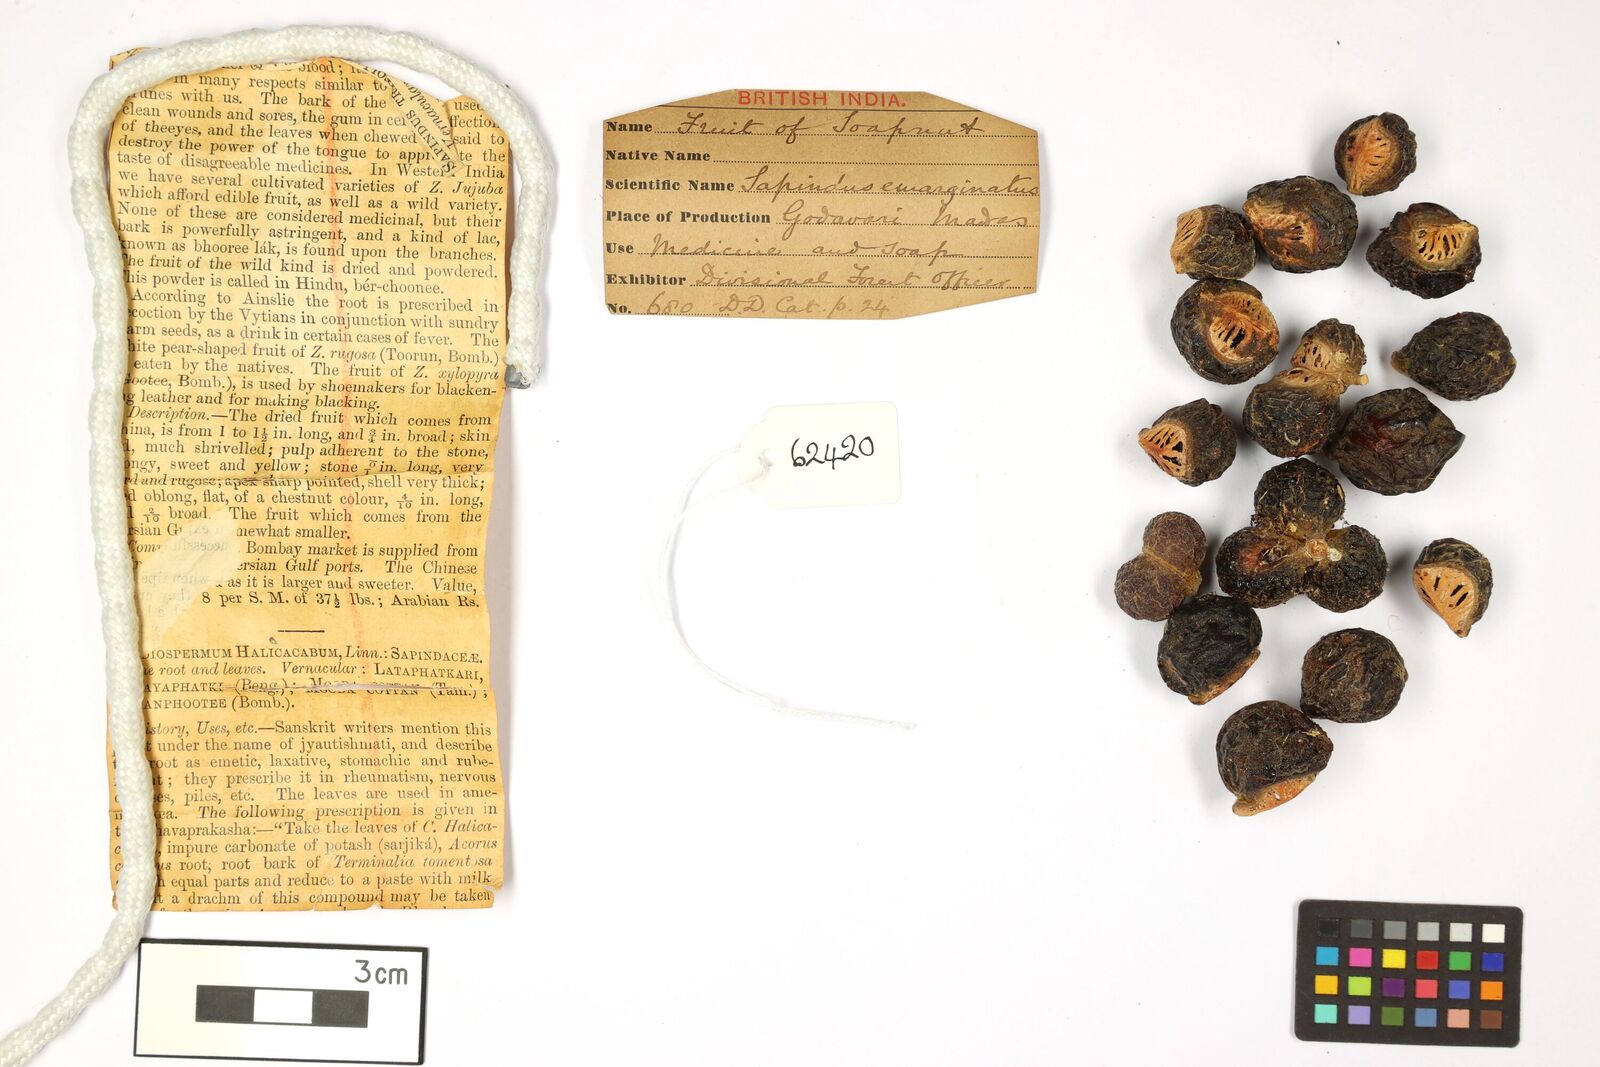 blood;
in many respects similar to
with us. The bark of the used
clean wounds and sores, the gum in
of theeyes, and the leaves when chewed said to
destroy the power of the tongue to the
taste of disagreeable medicines. In Western India
we have several cultivated varieties of Z. Jujuba
which afford edible fruit, as well as a wild variety.
None of these are considered medicinal, but their
bark is powerfully astringent, and a kind of lac,
known as bhooree lák, is found upon the branches.
The fruit of the wild kind is dried and powdered.
This powder is called in Hindu, bér-choonee.
According to Ainslie the root is prescribed in
by the Vytians in conjunction with sundry
seeds, as a drink in certain cases of fever. The
pear-shaped fruit of Z. rugosa (Toorun, Bomb.)
eaten by the natives. The fruit of Z. xylopyra
Bomb.), is used by shoemakers for blacken-
leather and for making blacking.
Description.—The dried fruit which comes from
is from 1 to 1½ in. long, and ¾ in. broad; skin
much shrivelled; pulp adherent to the stone,
sweet and yellow; stone in. long, very
and rugose; apex sharp pointed, shell very thick;
oblong, flat, of a chestnut colour, 4/10 in. long,
2/10 broad. The fruit which comes from the
somewhat smaller.
Bombay market is supplied from
Gulf ports. The Chinese
as it is larger and sweeter. Value,
8 per S. M. of 37½ lbs.; Arabian Rs.
HALICACABUM, Linn.: SAPINDACEÆ.
root and leaves. Vernacular: LATAPHATKARI,
(Beng.); (Tam.);
(Bomb.).
Uses, etc.—Sanskrit writers mention this
under the name of jyautishmati, and describe
root as emetic, laxative, stomachic and rube-
they prescribe it in rheumatism, nervous
piles, etc. The leaves are used in ame-
The following prescription is given in
"Take the leaves of C. Halica-
impure carbonate of potash (sarjiká), Acorus
root, root bark of Terminalia tomentosa
equal parts and reduce to a paste with milk
a drachm of this compound may be taken
SAPINDUS
Vernacular
BRITISH INDIA.
Name Fruit of Soapnut
Native Name
Scientific Name Sapindus emarginatus
Place of Production Godavari Madras
Use Medicine and soap
Exhibitor Divisional Forest Officer
No. 680 D.D. Cat. p. 24
62420
3cm